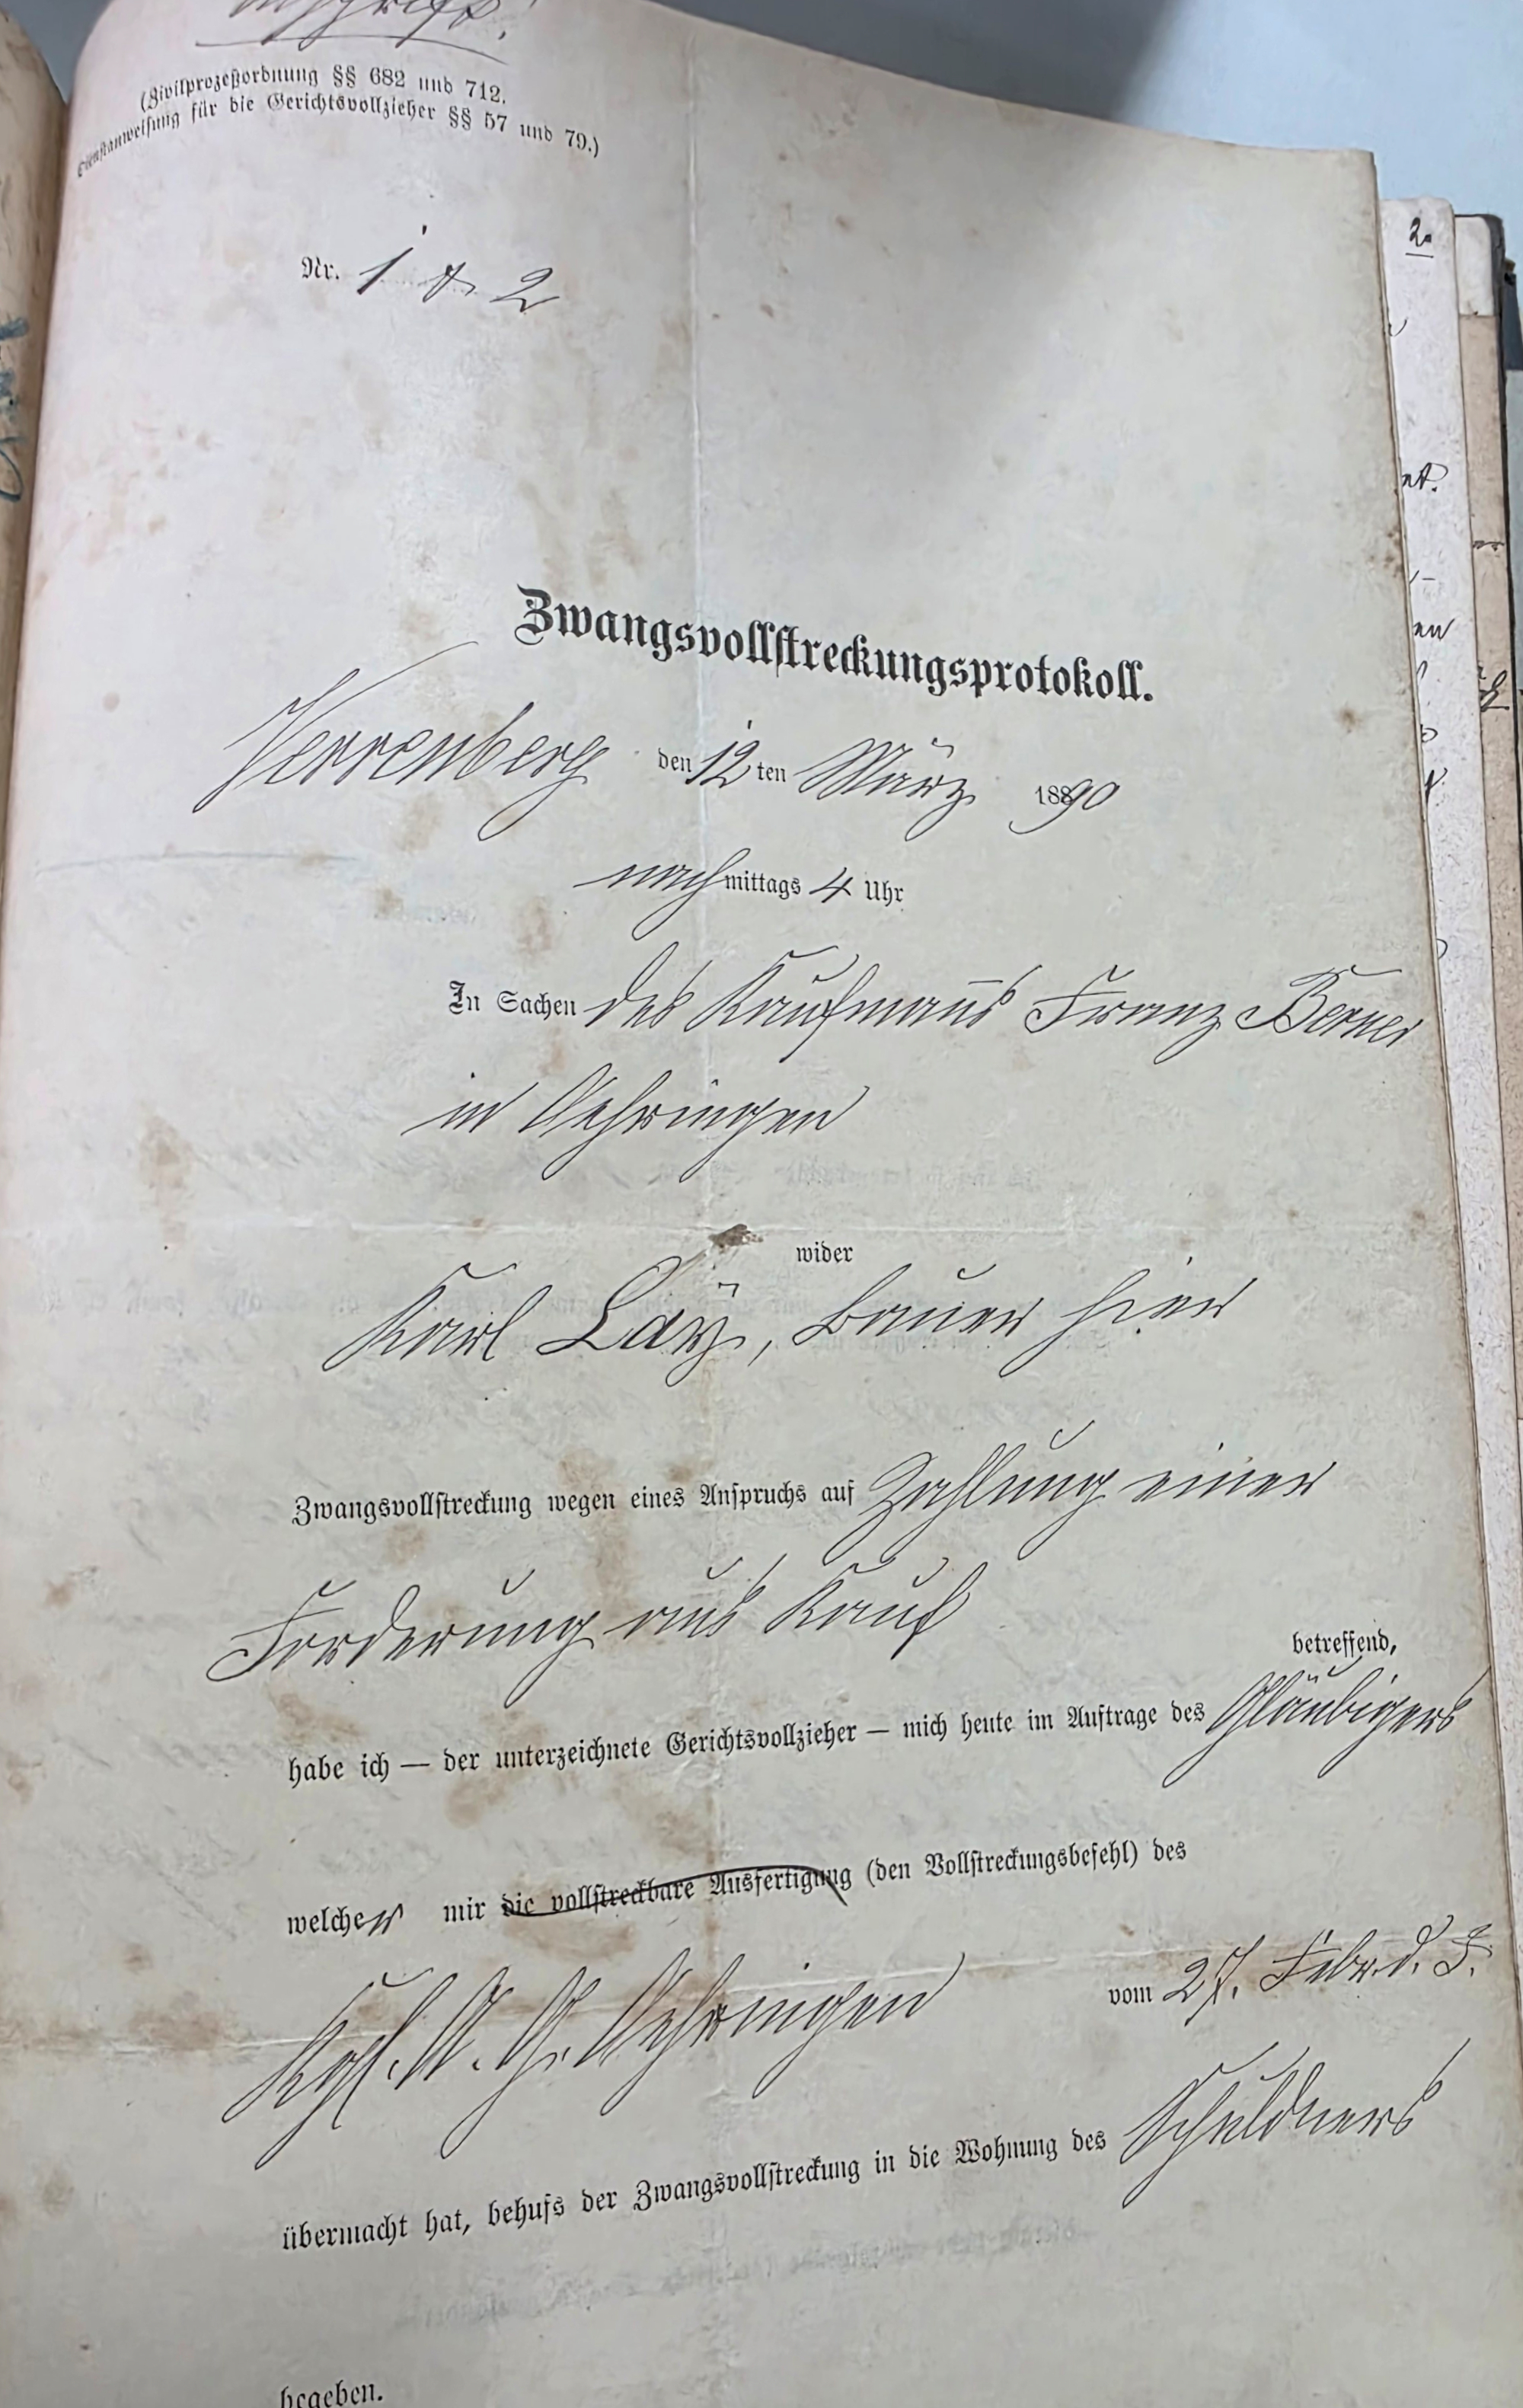 Abschrift.
(Zivilprozeßordnung §§ 682 und 712.
Dienstanweisung für die Gerichtsvollzieher §§ 57 und 79.)
Nr. 1 & 2
Zwangsvollstreckungsprotokoll.
Herrenberg den 12ten März 1890
nachmittags 4 Uhr
In Sachen des Kaufmanns Franz Berner
in Oehringen
wider
Karl Laÿ, Bauer hier
Zwangsvollstreckung wegen eines Anspruchs auf Zahlung einer
Forderung aus Kauf
betreffend,
habe ich — der unterzeichnete Gerichtsvollzieher — mich heute im Auftrage des Gläubigers
welcher mir die vollstreckbare Ausfertigung (den Vollstreckungsbefehl) des
Kgl. A. G. Oehringen vom 27. Febr. d. J.
übermacht hat, behufs der Zwangsvollstreckung in die Wohnung des Schuldners
begeben.
2.